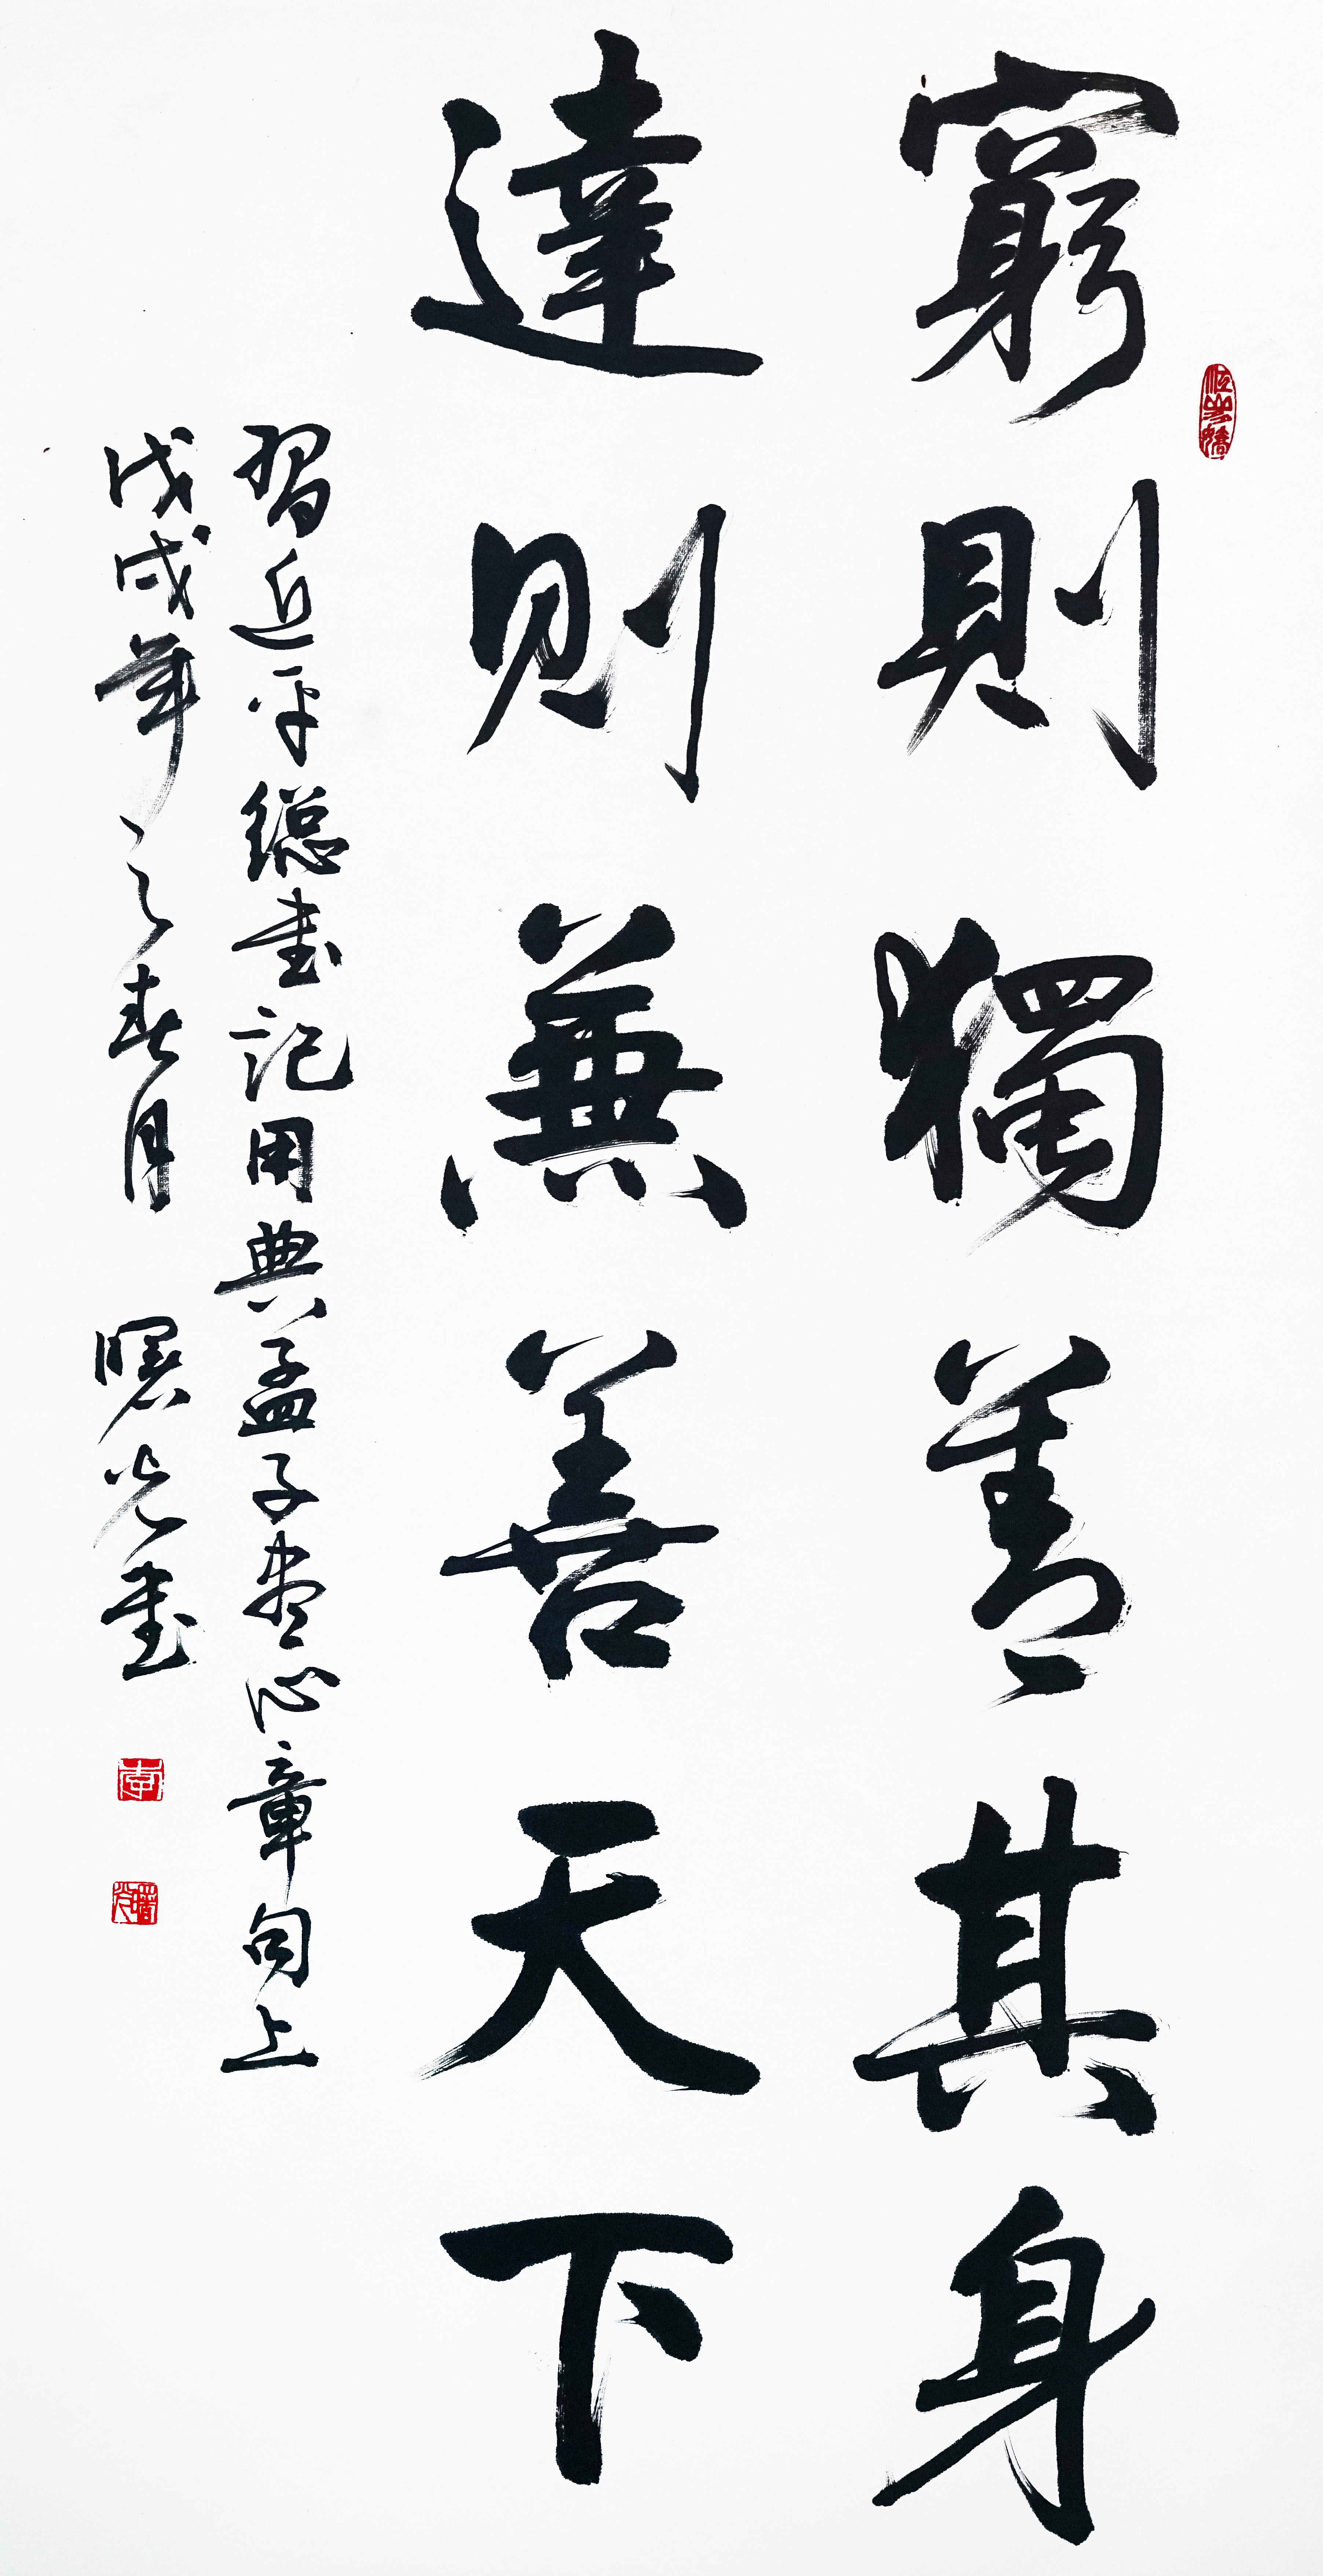 窮則獨善其身
達則兼善天下
習近平總書記用典孟子盡心章句上
戊戌年之春月 曙光書
李
曙光